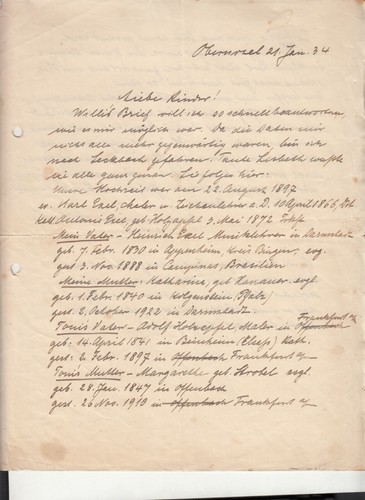 Oberursel 21 Jan. 34
Liebe Kinder!
Willis Brief will ich so schnell beantworten,
wie es mir möglich war. Da die Daten mir
nicht alle mehr gegenwärtig waren, bin ich
nach gefahren. Tante Lisbeth wußte
sie alle ganz genau. Sie folgen hier:
Unsere Hochzeit war am 22. August 1897
Karl Exel, Maler u. Zeichenlehrer a. D. 10 April 1865,
Antonie Exel geb. Holzapfel 3. Mai 1872
Mein Vater - Heinrich Exel Musiklehrer in Darmstadt
geb. 7. Febr. 1830 in Appenheim, Kreis Bingen, evg.
gest. 3. Nov. 1888 in Campinas, Brasilien
Meine Mutter: Katharine, geb. evgl.
geb. 1. Febr. 1840 in Kolgenstein (Pfalz)
gest. 2. October 1922 in Darmstadt.
Frankfurt a/
Tonis Vater - Adolf Holzapfel Maler in Offenbach
geb. 14. April 1841 in (Elsass) Kath.
gest. 2. Febr. 1897 in Offenbach Frankfurt a/
Tonis Mutter - Margarethe geb. Strobel evgl.
geb. 28. Jan. 1847 in Offenbach
gest. 26 Nov. 1919 in Offenbach Frankfurt a/